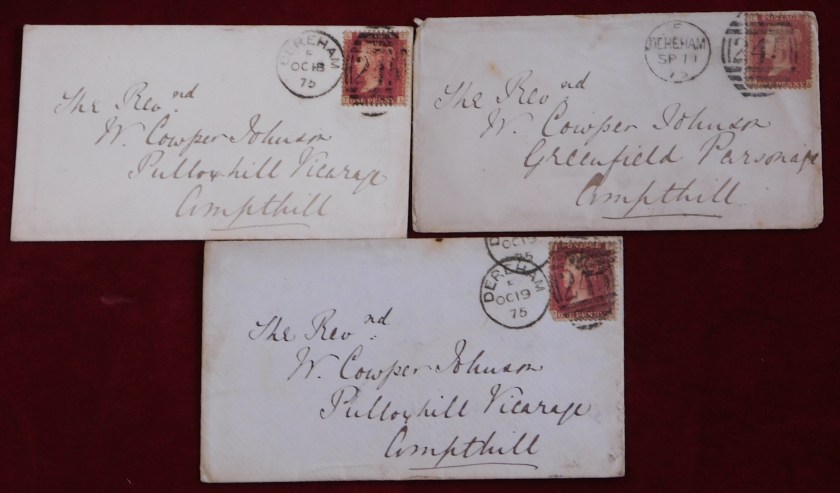 DEREHAM
OC 18
75
The Revnd
W. Cowper Johnson
Pulloxhill Vicarage
Ampthill
DEREHAM
SP 11
The Revnd
W. Cowper Johnson
Greenfield Parsonage
Ampthill
OC 19
75
DEREHAM
OC 19
75
The Revnd
W. Cowper Johnson
Pulloxhill Vicarage
Ampthill